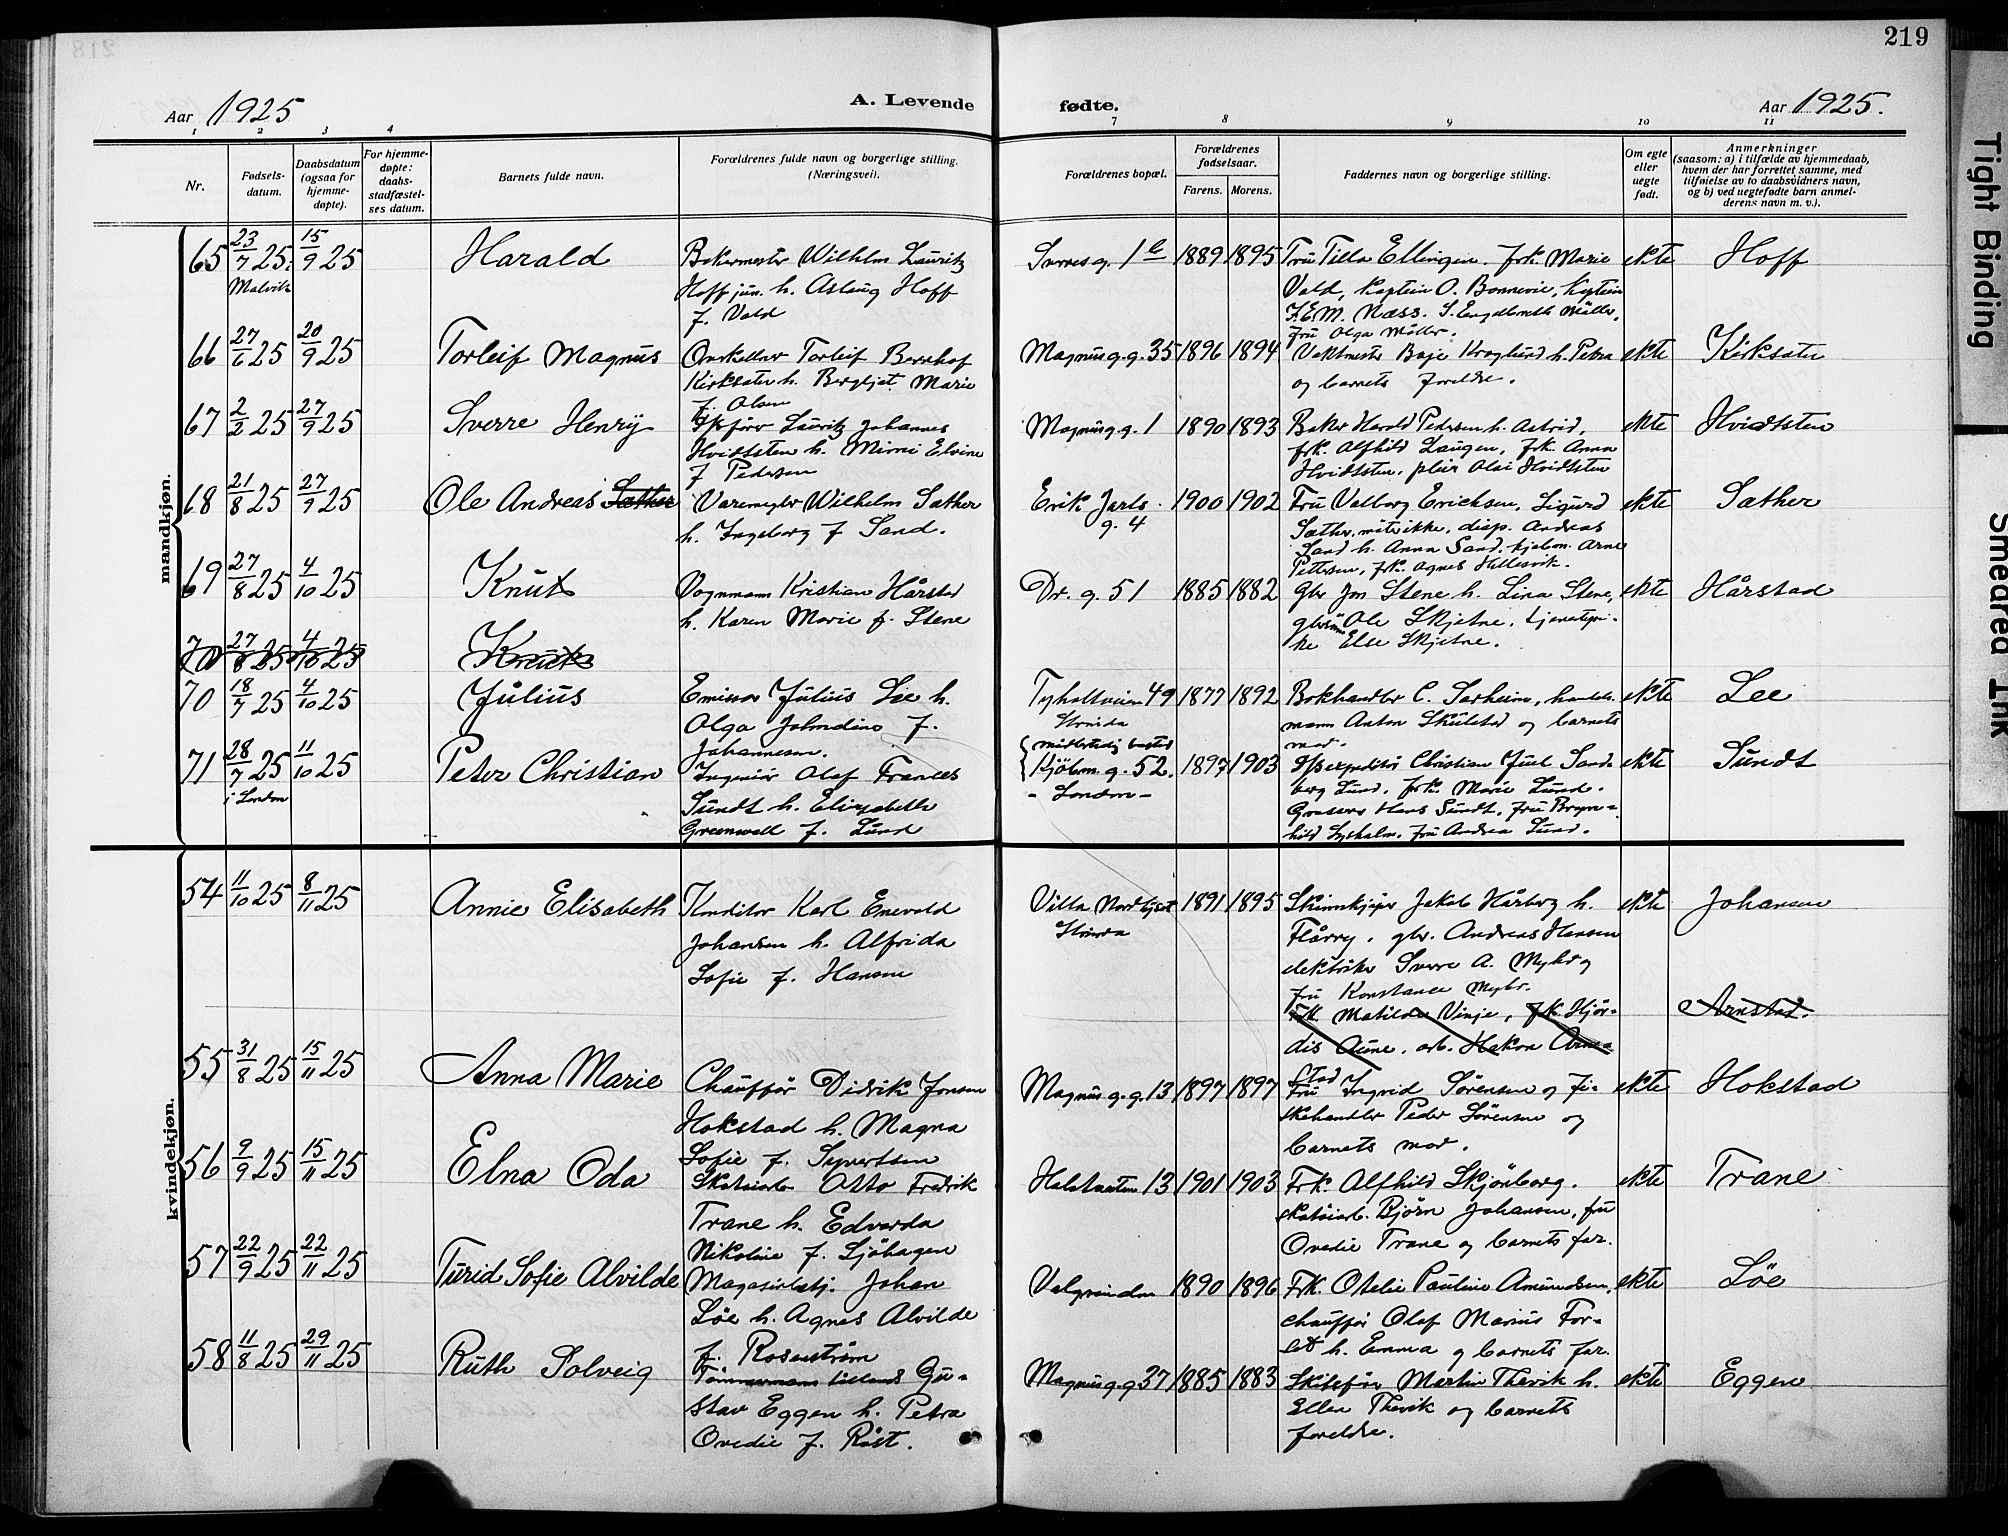 219
Aar 1925
A. Levende
fødte.
Aar 1925.
1 2 3 4
7 8 9 10 11
Nr.
Fødsels-
datum.
Daabsdatum
(ogsaa for
hjemme-
døpte).
For hjemme-
døpte:
daabs-
stadfæstel-
ses datum.
Barnets fulde navn.
Forældrenes fulde navn og borgerlige stilling.
(Næringsvei).
Forældrenes bopæl.
Forældrenes
fødselsaar.
Farens. Morens.
Faddernes navn og borgerlige stilling.
Om egte
eller
uegte
født.
Anmerkninger
(saasom: a) i tilfælde av hjemmedaab,
hvem der har forrettet samme, med
tilføielse av to daabsvidners navn,
og b) ved uegtefødte barn anmel-
derens navn m. v.).
mandkjøn.
65 23/7 25. 15/9 25 Harald
Malvik
Bakermester Wilhelm Lauritz
Hoff jun. h. Aslaug Hoff
f. Vold
1889 1895
Fru Tilla Ellingen. frk. Marie
Vold, Kaptein O. Bonnevie, Kaptein
J.E.M. Næss. S. Engelbreth Müller,
fru Olga Müller.
ekte Hoff
66 27/6 25 20/9 25 Torleif Magnus
Torleif Bernhof
h. Bergljot Marie
f. Olsen
Magnusg.g. 35 1896 1894
h. Petra
og barnets foreldre.
ekte
67 2/2 25 27/9 25 Sverre Henry
Lauritz Johannes
Hvidtsten h. Mimi Elvine
f Pedersen
Magnusg.g. 1 1890 1893
Baker Harald Pedersen h. Astrid,
frk. Alfhild Laugen, frk. Anna
Hvidtsten, Hvidtsten
ekte Hvidtsten
68 21/8 25 27/9 25 Ole Andreas Sæther
Varemegler Wilhelm Sæther
h. Ingeborg f Sand.
Erik Jarls
g. 4
1900 1902
Fru Valborg Erichsen, Sigurd
Sæther, disp. Andreas
Sand h. Anna Sand, kjøbm. Arne
Pettersen, frk. Agnes
ekte Sæther
69 27/8 25 4/10 25 Knut
Vognmann Kristian Hårstad
h. Karen Marie f. Stene
Dr. g. 51 1885 1882
Gbr Jon Stene h. Lina Stene,
Ole Skjetne, tjenestepi-
ke Else Skjetne.
ekte Hårstad
70 27/8 25 4/10 25 Knut
70 18/7 25 4/10 25 Julius
Emissær Julius Lee h.
Olga f.
Johannesen.
Tyholtveien 49
Strinda
1877 1892
Bokhandler C. handels-
mann Anton og barnets
mor.
ekte Lee
71 28/7 25 11/10 25 Peter Christian
i London
Ingeniør Olaf Frances
Sundt h. Elizabeth
Greenwell f. Lund
midlertidig bosted
Kjøbm.g. 52.
- London -
1897 1903
Christian Juel Sand-
berg Lund, frk. Marie Lund.
Grosserer Hans Sundt, fru Bryn-
hild Lysholm, fru Andrea Lund.
ekte Sundt
kvindekjøn.
54 11/10 25 8/11 25 Annie Elisabeth
Konditor Karl Enevold
Johansen h. Alfrida
Sofie f. Hansen
Villa Nordlyset
Strinda
1891 1895
Jakob Hårberg h.
gbr. Andreas Hansen
elektriker Sverre A. Myhr og
fru Konstanse Myhr.
ekte Johansen
Frk. Matilde Vinje, frk. Hjør-
dis Aune. arb. Håkon Arne-
stad
Arnstad.
55 31/8 25 15/11 25 Anna Marie
Chauffør Didrik Jonsen
Hokstad h. Magna
Sofie f. Syvertsen
Magnusg.g. 13 1897 1897
Fru Ingrid Sørensen og fi-
skehandler Peder Sørensen og
barnets mor.
ekte Hokstad
56 9/9 25 15/11 25 Elna Oda
Skotøiarb Otto Fredrik
Trane h. Edvarda
Nikoline f. Sjøhagen
1901 1903
Frk. Alfhild Skjönberg.
skotøiarb. Bjørn Johansen, fru
Ovedie Trane og barnets far.
ekte Trane
57 22/9 25 22/11 25 Turid Sofie Alvilde
Magasinbetj. Johan
Löe h. Agnes Alvilde
f. Rosenström
1890 1896
Frk. Otelie Pauline Amundsen,
chauffør Olaf Marius For-
h. Emma og barnets far.
ekte Löe
58 11/8 25 29/11 25 Ruth Solveig
Tömmermann Gu-
stav Eggen h. Petra
Ovedie f. Röst.
Magnusg.g 37 1885 1883
Martin Thevik h.
Ellen Thevik og barnets
foreldre.
ekte Eggen
Tight Binding
Smeared Ink